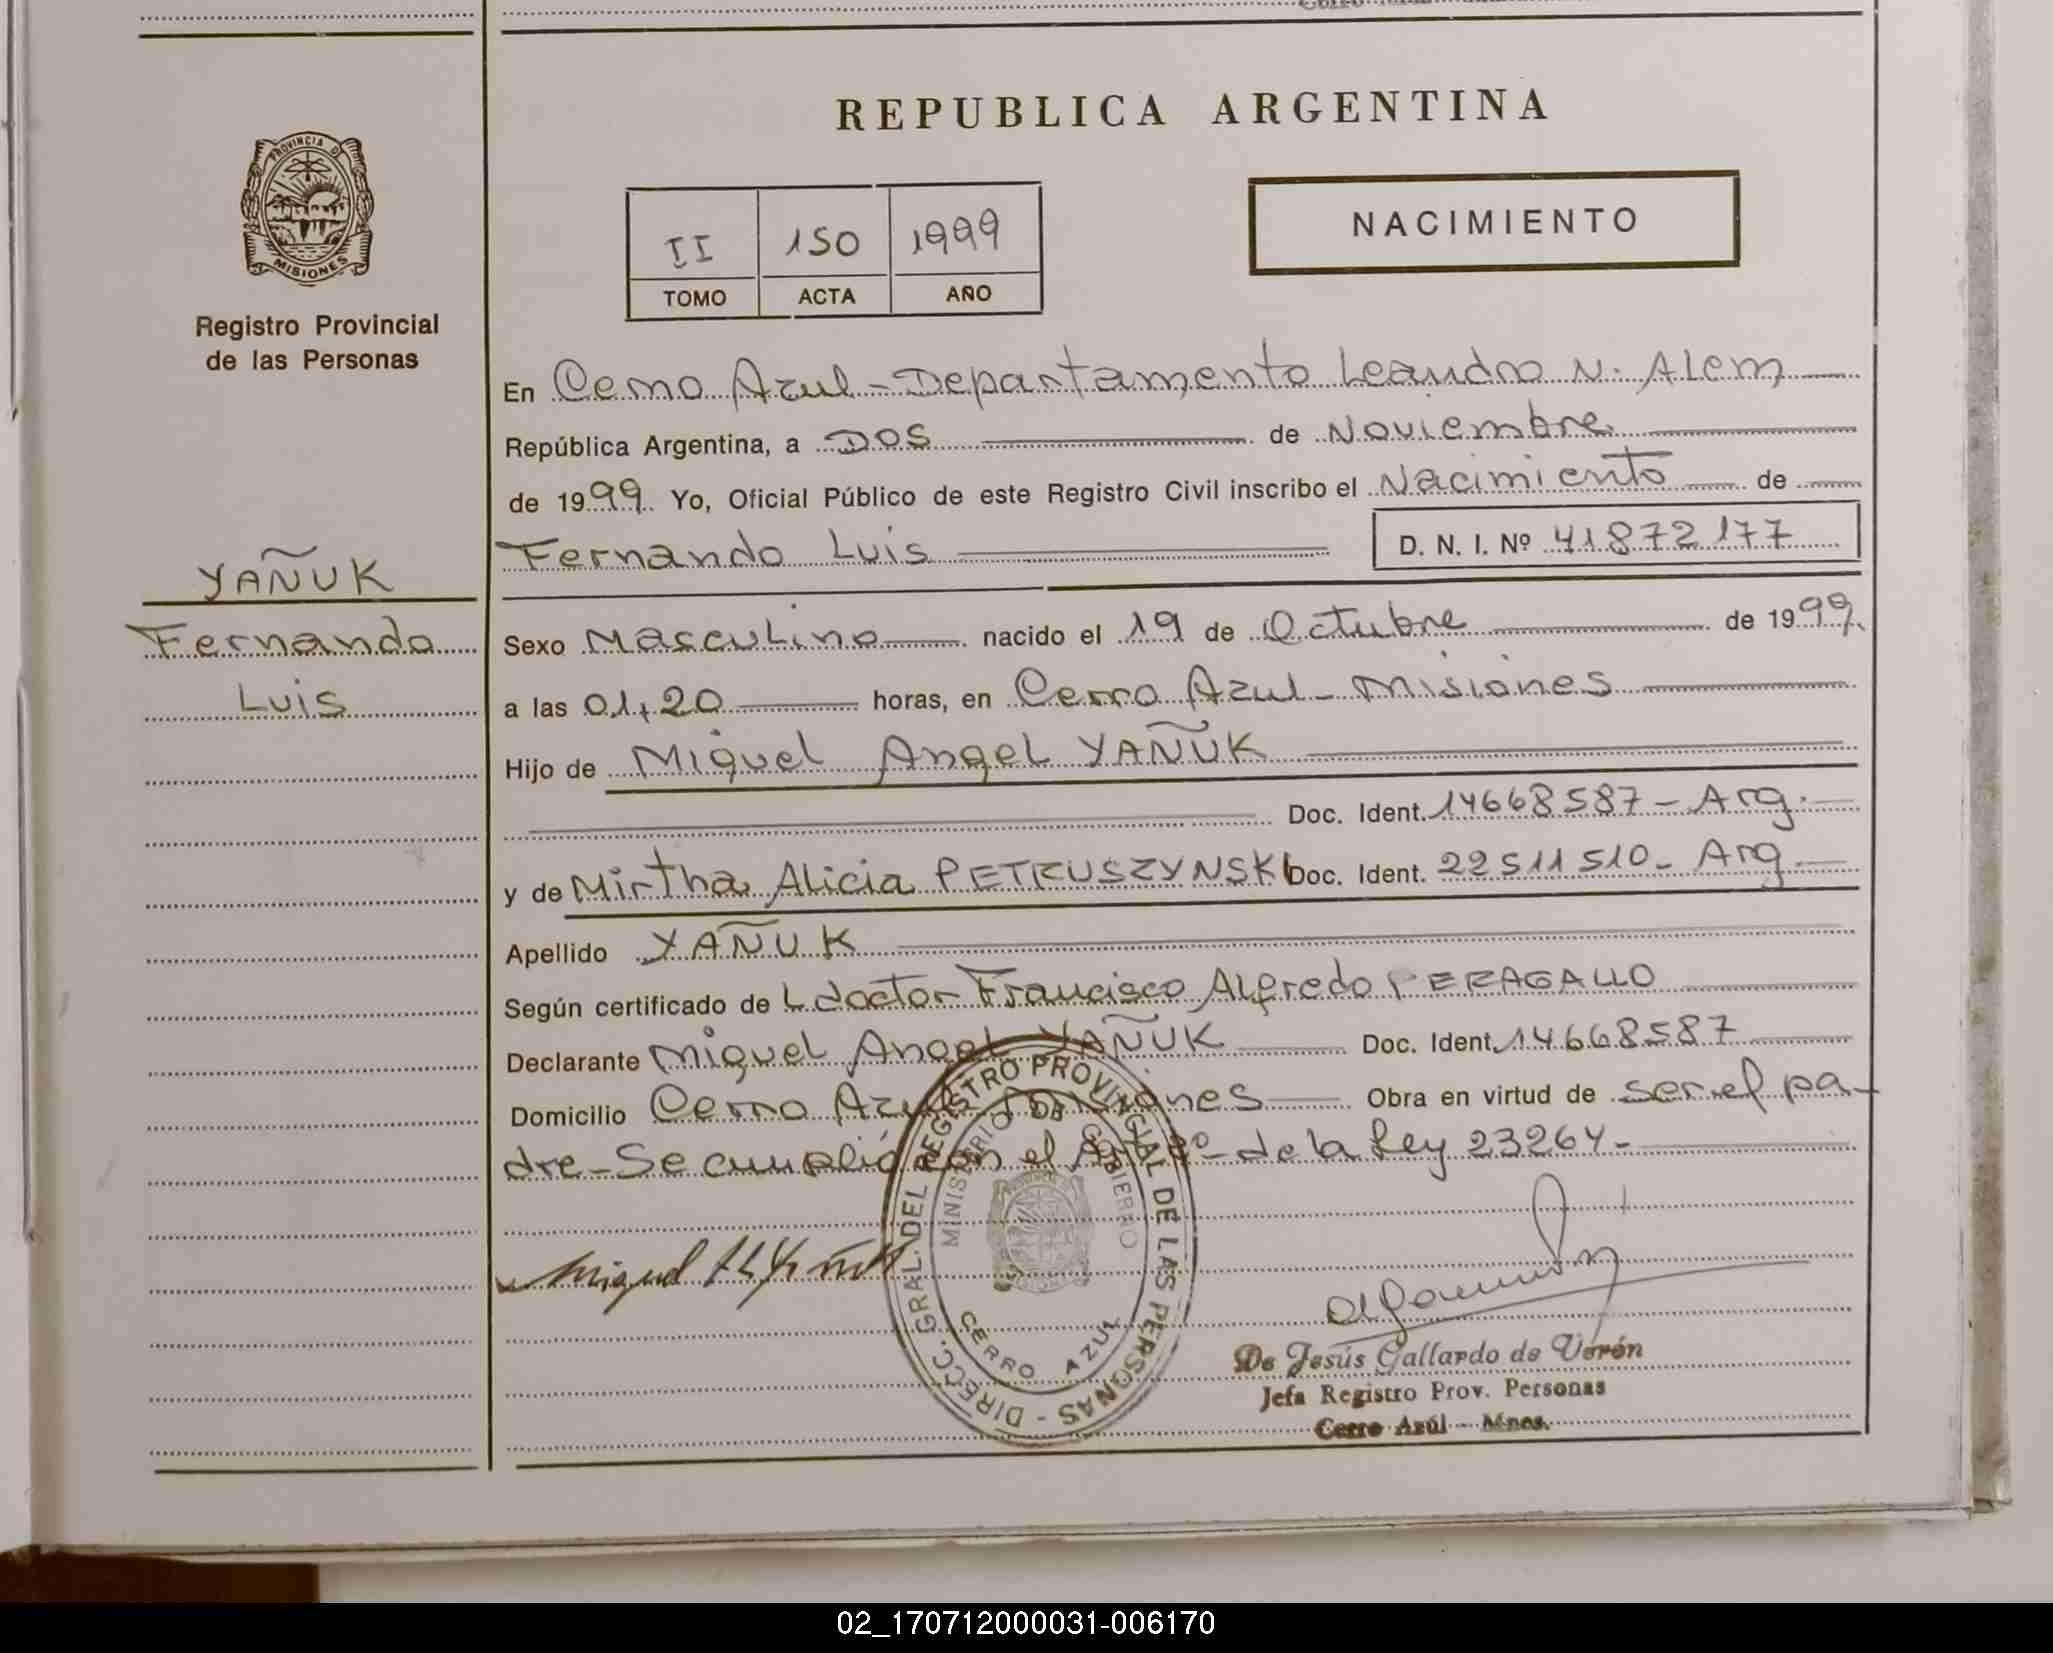 REPUBLICA ARGENTINA
PROVINCIA D
MISIONES
Registro Provincial
de las Personas
II 150 1999
TOMO ACTA AÑO
NACIMIENTO
En Cerro Azul - Departamento Leandro N. Alem
República Argentina, a Dos de Noviembre
de 1999. Yo, Oficial Público de este Registro Civil inscribo el Nacimiento de
Fernando Luis D. N. I. Nº 41872177
YAÑUK
Fernando
Luis
Sexo Masculino nacido el 19 de Octubre de 1999.
a las 01,20 horas, en Cerro Azul - Misiones
Hijo de Miguel Angel YAÑUK
Doc. Ident. 14668587 - Arg.
y de Mirtha Alicia PETRUSZYNSKI Doc. Ident. 22511510 - Arg
Apellido YAÑUK
Según certificado de L doctor Francisco Alfredo PERAGALLO
Declarante Miguel Angel YAÑUK Doc. Ident. 14668587
Domicilio Cerro Azul - Misiones Obra en virtud de ser el pa-
dre - Se cumplió con el Art 2º de la Ley 23264 -
DIRECC. GRAL. DEL REGISTRO PROVINCIAL DE LAS PERSONAS -
MINISTERIO DE GOBIERNO
CERRO AZUL
Miguel
De Jesús Gallardo de Verón
Jefa Registro Prov. Personas
Cerro Azúl - Mnes.
02_170712000031-006170